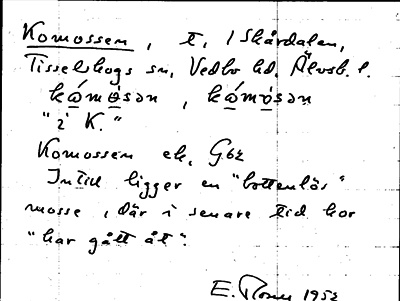 Komossen, t, i Skårdalen,
Tisselskogs sn, Vedbo hd, Älvsb. l.
kọ́mọ̀sən, kọ́mọsən
"i K."
Komossen ek, G62
Intill ligger en "bottenlös"
mosse, där i senare tid kor
"har gått åt".
E. 1952